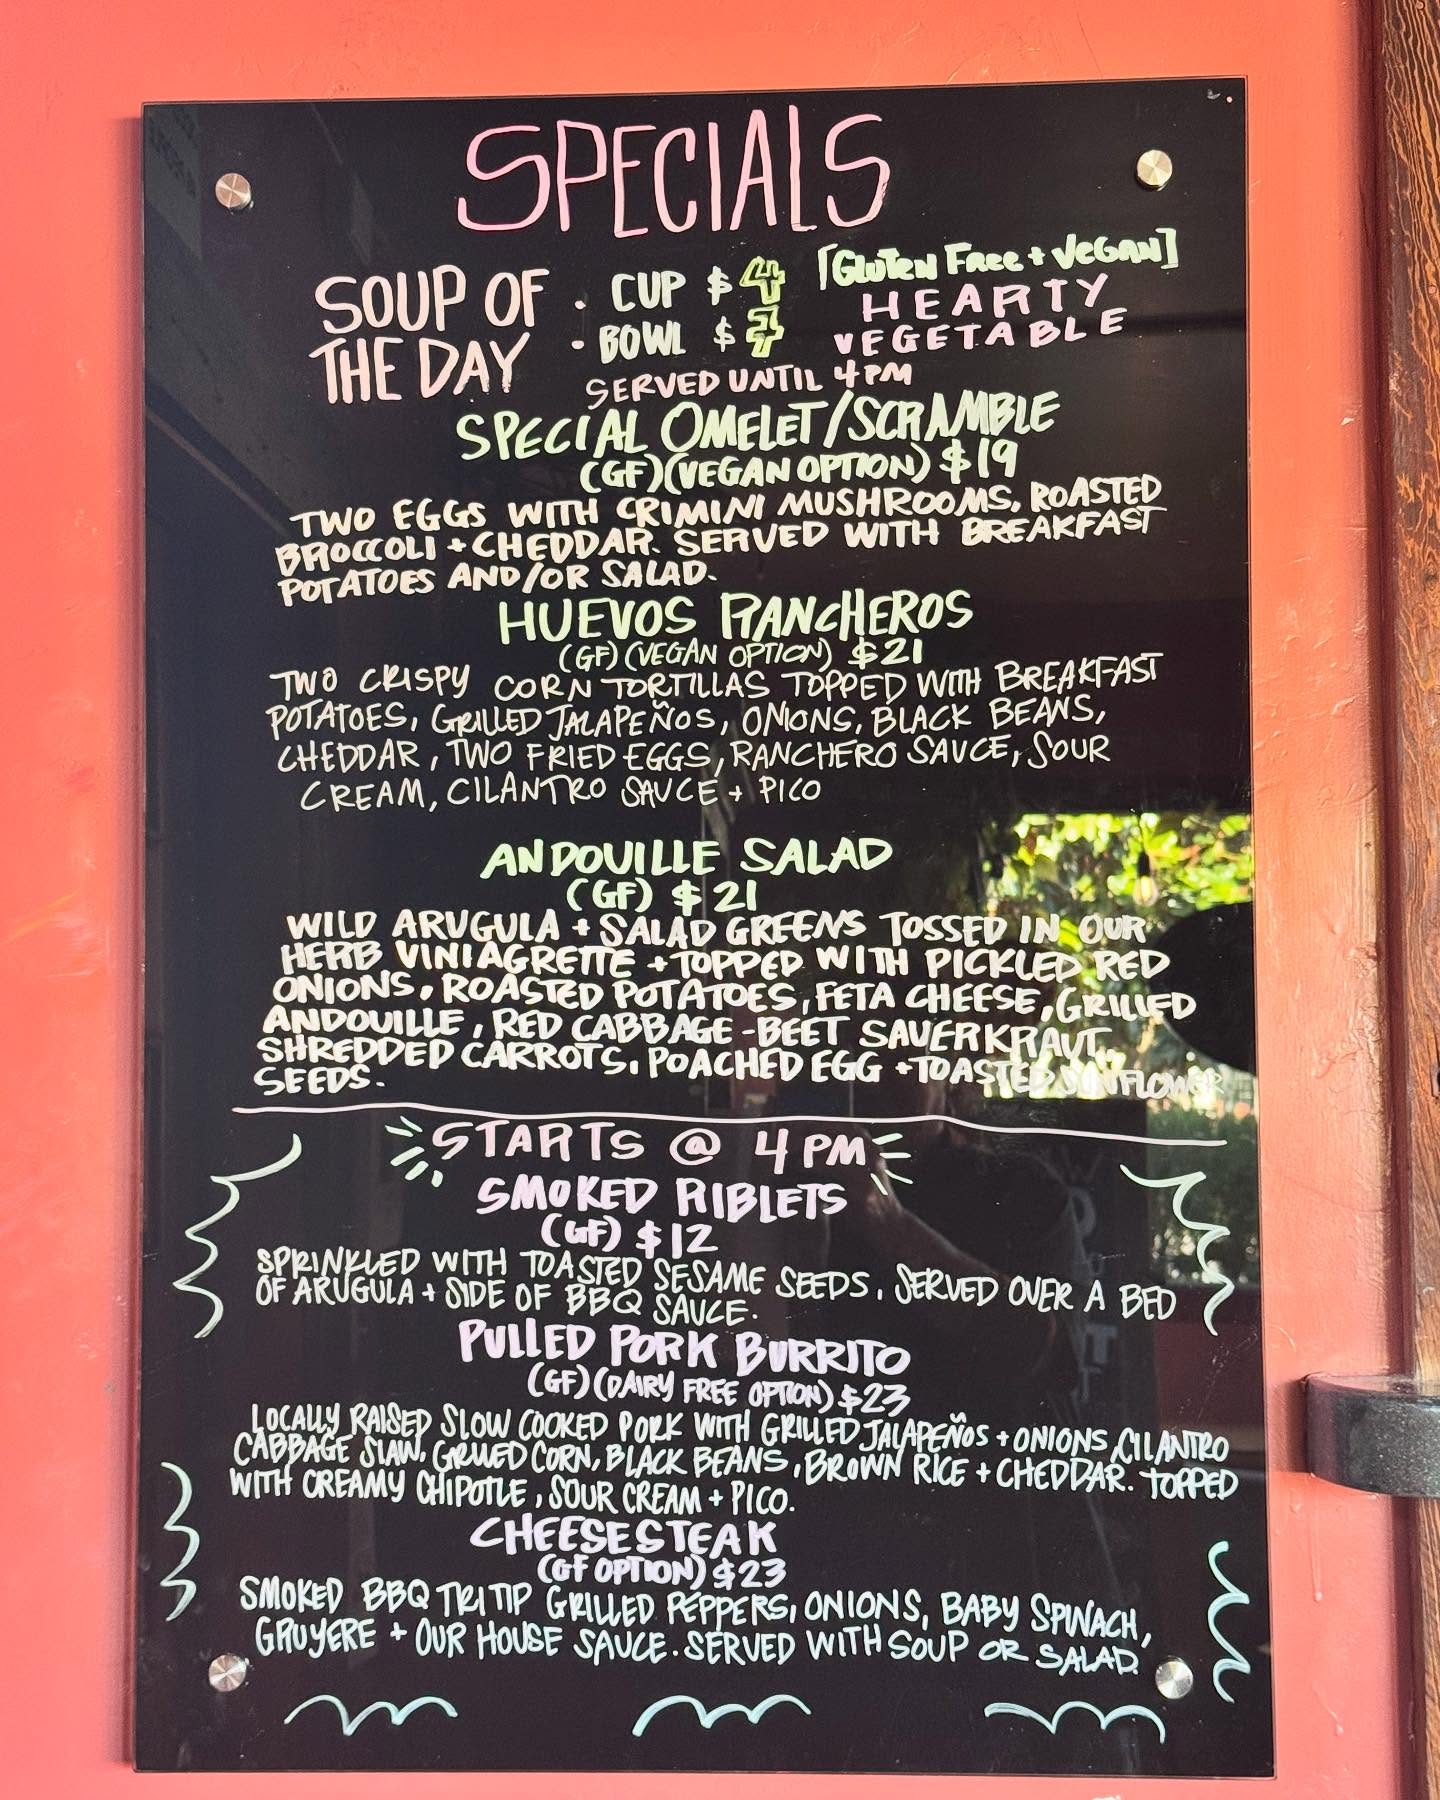 SPECIALS
SOUP OF THE DAY
· CUP $4
· BOWL $7
[GLUTEN FREE + VEGAN]
HEARTY
VEGETABLE
SERVED UNTIL 4PM
SPECIAL OMELET/SCRAMBLE
(GF)(VEGAN OPTION) $19
TWO EGGS WITH CRIMINI MUSHROOMS, ROASTED
BROCCOLI + CHEDDAR. SERVED WITH BREAKFAST
POTATOES AND/OR SALAD.
HUEVOS RANCHEROS
(GF)(VEGAN OPTION) $21
TWO CRISPY CORN TORTILLAS TOPPED WITH BREAKFAST
POTATOES, GRILLED JALAPEÑOS, ONIONS, BLACK BEANS,
CHEDDAR, TWO FRIED EGGS, RANCHERO SAUCE, SOUR
CREAM, CILANTRO SAUCE + PICO
ANDOUILLE SALAD
(GF) $21
WILD ARUGULA + SALAD GREENS TOSSED IN OUR
HERB VINIAGRETTE + TOPPED WITH PICKLED RED
ONIONS, ROASTED POTATOES, FETA CHEESE, GRILLED
ANDOUILLE, RED CABBAGE-BEET SAUERKRAUT,
SHREDDED CARROTS, POACHED EGG + TOASTED SUNFLOWER
SEEDS.
STARTS @ 4PM
SMOKED RIBLETS
(GF) $12
SPRINKLED WITH TOASTED SESAME SEEDS, SERVED OVER A BED
OF ARUGULA + SIDE OF BBQ SAUCE.
PULLED PORK BURRITO
(GF)(DAIRY FREE OPTION) $23
LOCALLY RAISED SLOW COOKED PORK WITH GRILLED JALAPEÑOS + ONIONS, CILANTRO
CABBAGE SLAW, GRILLED CORN, BLACK BEANS, BROWN RICE + CHEDDAR. TOPPED
WITH CREAMY CHIPOTLE, SOUR CREAM + PICO.
CHEESESTEAK
(GF OPTION) $23
SMOKED BBQ TRI TIP GRILLED PEPPERS, ONIONS, BABY SPINACH,
GRUYERE + OUR HOUSE SAUCE. SERVED WITH SOUP OR SALAD.